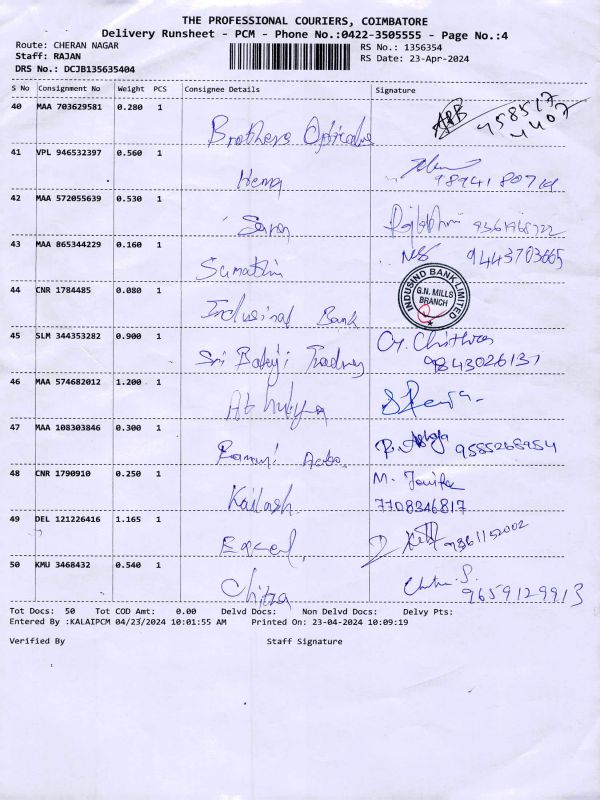 THE PROFESSIONAL COURIERS, COIMBATORE
Delivery Runsheet - PCM - Phone No.:0422-3505555 - Page No.:4
Route: CHERAN NAGAR
Staff: RAJAN
DRS No.: DCJB135635404
RS No.: 1356354
RS Date: 23-Apr-2024
S No Consignment No Weight PCS Consignee Details Signature
40 MAA 703629581 0.280 1
Brothers Opticals
41 VPL 946532397 0.560 1
Hema 9894180714
42 MAA 572055639 0.530 1
Saran Rajlakshmi
43 MAA 865344229 0.160 1
Sumathi 9443703665
44 CNR 1784485 0.080 1
Indusind Bank
INDUSIND BANK LIMITED
G.N. MILLS
BRANCH
45 SLM 344353282 0.900 1
Sri Balaji Trading
9843026131
46 MAA 574682012 1.200 1
Athulya
47 MAA 108303846 0.300 1
9585268954
48 CNR 1790910 0.250 1
Kailash. M. Jenifer
7708346817
49 DEL 121226416 1.165 1
Excel, 9361152002
50 KMU 3468432 0.540 1
Chitra 9659129913
Tot Docs: 50 Tot COD Amt: 0.00 Delvd Docs: Non Delvd Docs: Delvy Pts:
Entered By :KALAIPCM 04/23/2024 10:01:55 AM Printed On: 23-04-2024 10:09:19
Verified By Staff Signature